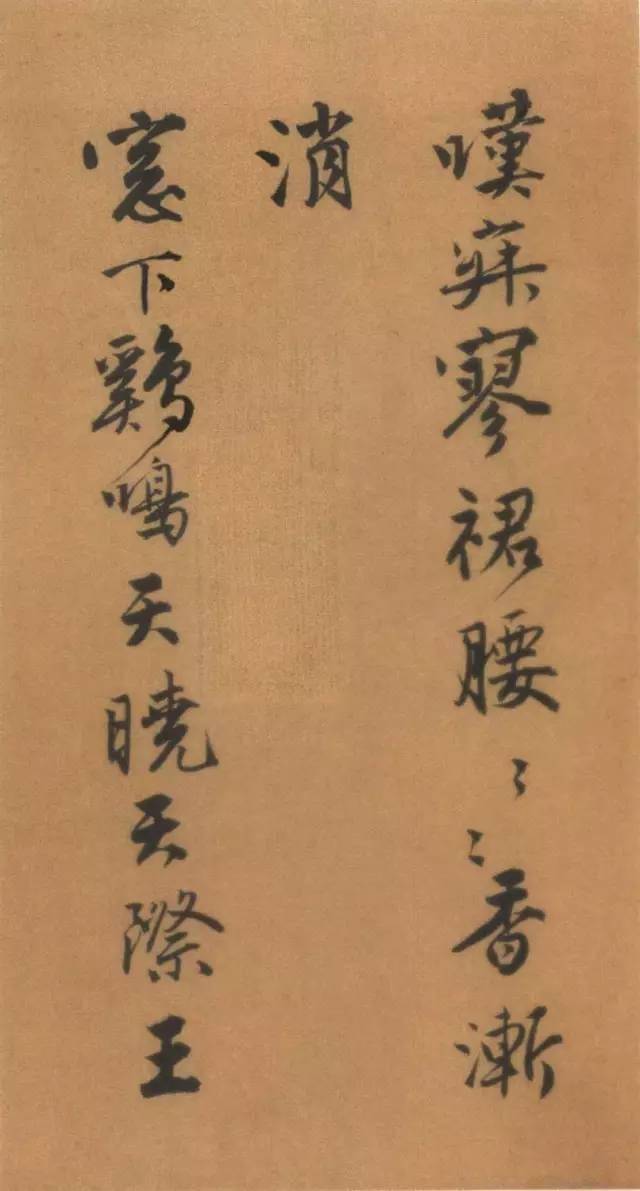 嘆寂寥裙腰〻〻香漸
消
窓下鷄鳴天曉天際王